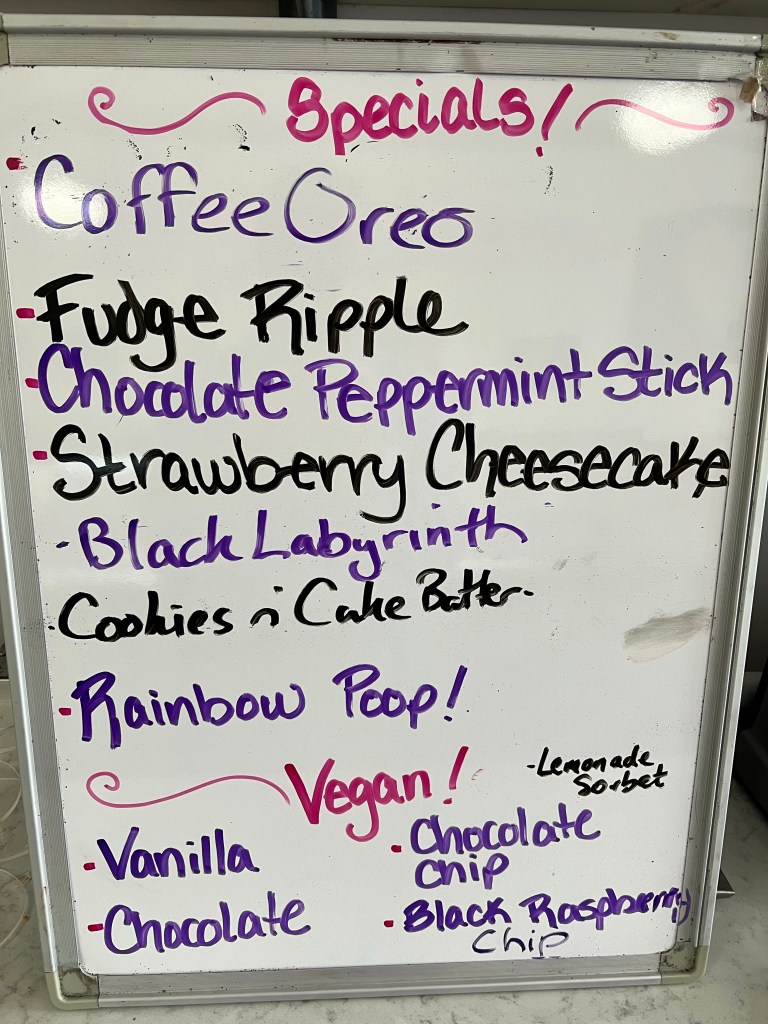 Specials!
- Coffee Oreo
- Fudge Ripple
- Chocolate Peppermint Stick
- Strawberry Cheesecake
- Black Labyrinth
- Cookies n' Cake Batter-
- Rainbow Poop!
Vegan!
- Lemonade
Sorbet
- Vanilla
- Chocolate
- Chocolate
Chip
- Black Raspberry
Chip